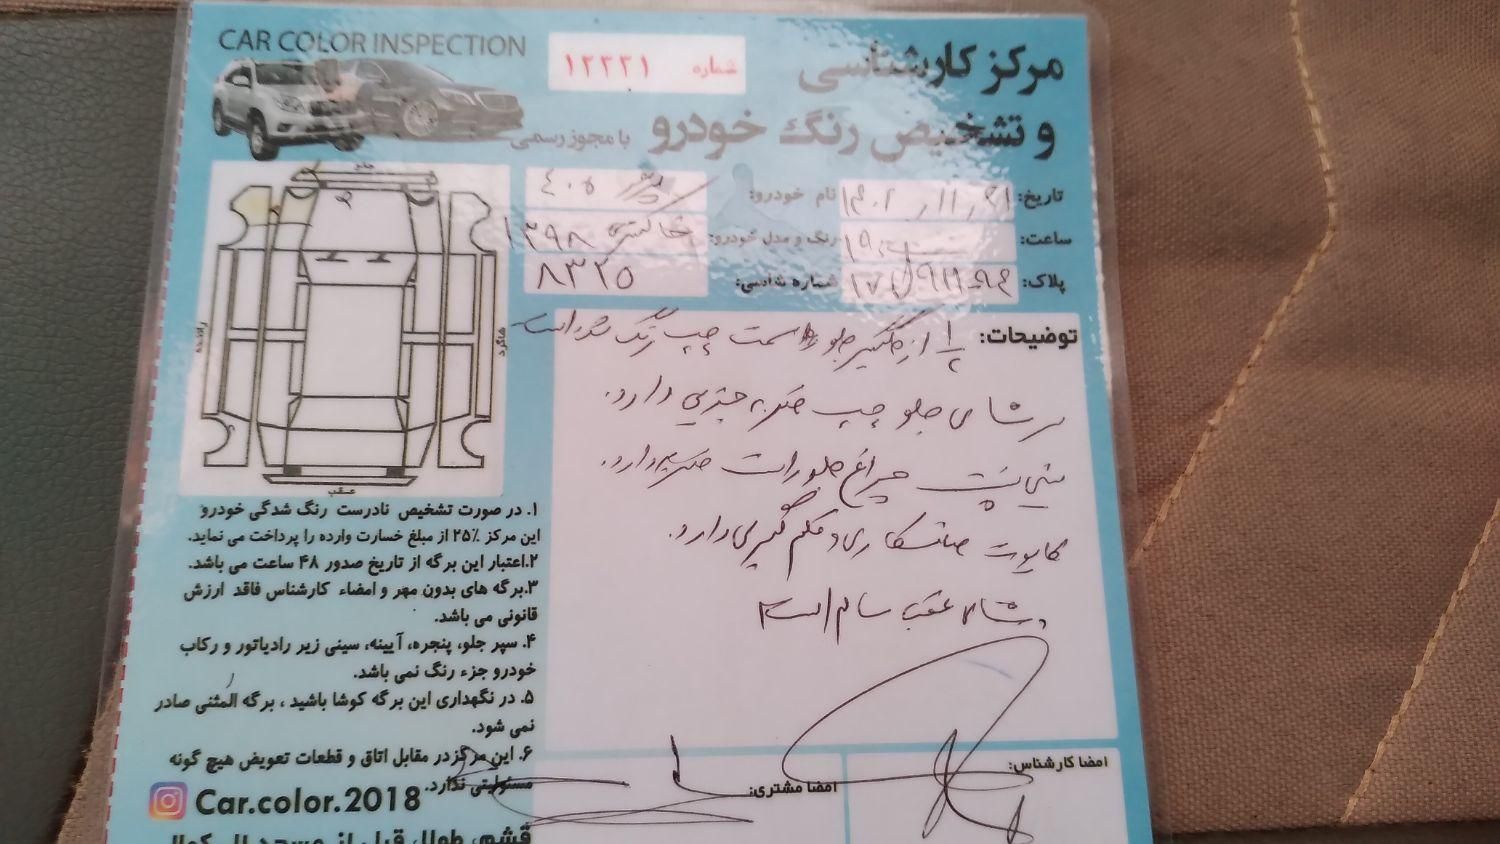 CAR COLOR INSPECTION
شماره ۱۲۲۲۱
مرکز کارشناسی
و تشخیص رنگ خودرو با مجوز رسمی
تاریخ:
نام خودرو: پژو ۴۰۵
ساعت: ۱۹
رنگ و مدل خودرو: خاکستری ۱۳۹۸
پلاک:
شماره شاسی: ۸۳۲۵
جلو
راننده
شاگرد
عقب
توضیحات: ۱/۲ از گلگیر جلو سمت چپ رنگ شده است
سر شاسی جلو چپ ضربه جزیی دارد.
سینی پشت چراغ جلو راست ضربه دارد.
کاپوت صافکاری و قلم گیری دارد.
شاسی عقب سالم است
۱. در صورت تشخیص نادرست رنگ شدگی خودرو
این مرکز ۲۵٪ از مبلغ خسارت وارده را پرداخت می نماید.
۲.اعتبار این برگه از تاریخ صدور ۴۸ ساعت می باشد.
۳.برگه های بدون مهر و امضاء کارشناس فاقد ارزش
قانونی می باشد.
۴. سپر جلو، پنجره، آیینه، سینی زیر رادیاتور و رکاب
خودرو جزء رنگ نمی باشد.
۵. در نگهداری این برگه کوشا باشید ، برگه المثنی صادر
نمی شود.
۶. این مرکزدر مقابل اتاق و قطعات تعویض هیچ گونه
مسئولیتی ندارد.
امضا کارشناس:
امضا مشتری:
Car.color.2018
قشم،